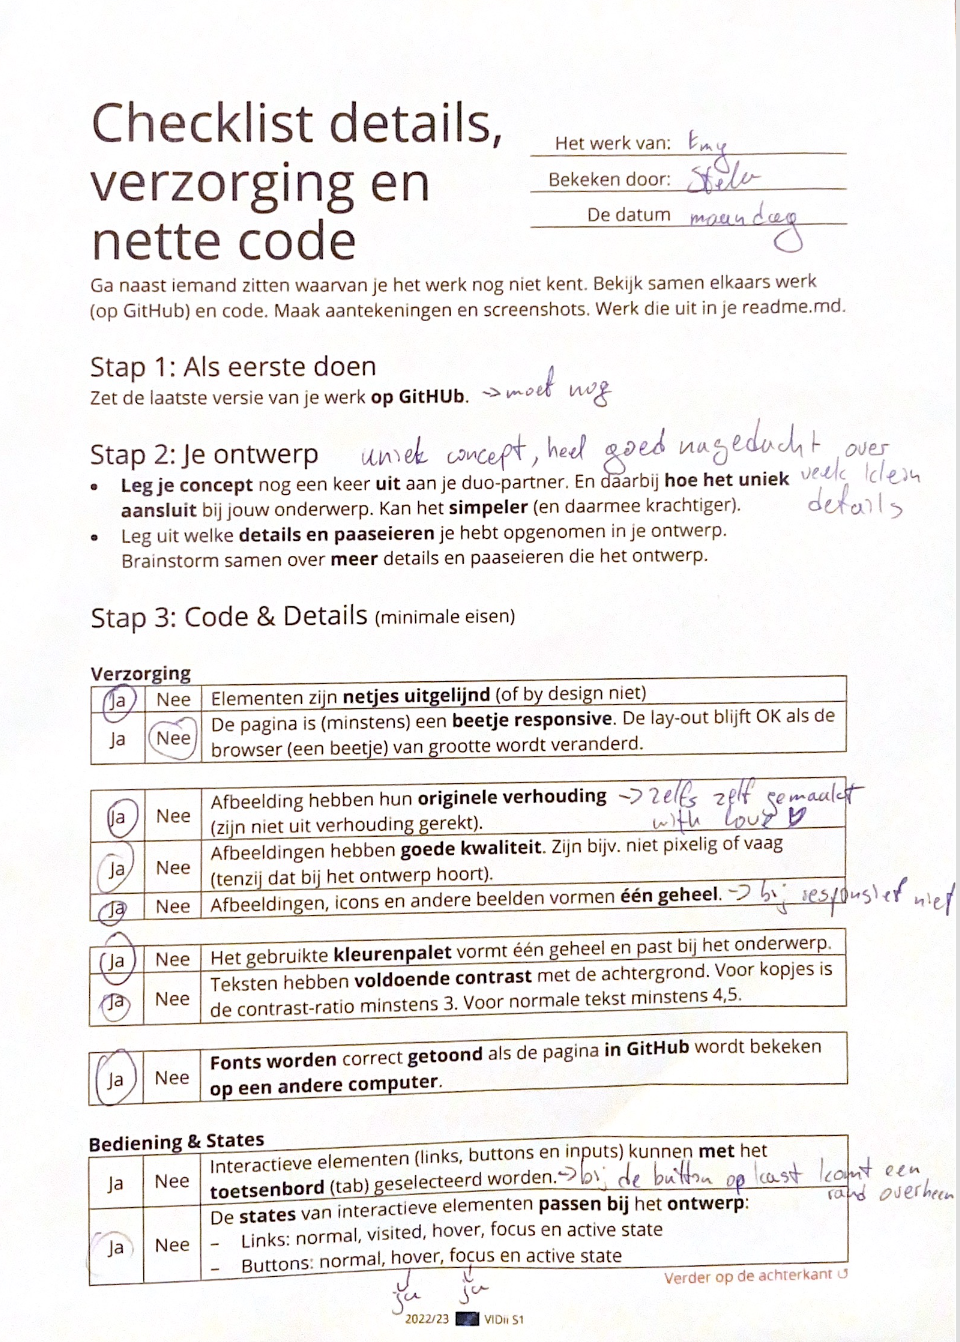 Checklist details,
verzorging en
nette code
Het werk van: Emy
Bekeken door:
De datum maandag
Ga naast iemand zitten waarvan je het werk nog niet kent. Bekijk samen elkaars werk
(op GitHub) en code. Maak aantekeningen en screenshots. Werk die uit in je readme.md.
Stap 1: Als eerste doen
Zet de laatste versie van je werk op GitHUb. -> moet nog
Stap 2: Je ontwerp uniek concept, heel goed nagedacht over
veel klein
details
• Leg je concept nog een keer uit aan je duo-partner. En daarbij hoe het uniek
aansluit bij jouw onderwerp. Kan het simpeler (en daarmee krachtiger).
• Leg uit welke details en paaseieren je hebt opgenomen in je ontwerp.
Brainstorm samen over meer details en paaseieren die het ontwerp.
Stap 3: Code & Details (minimale eisen)
Verzorging
Ja Nee Elementen zijn netjes uitgelijnd (of by design niet)
Ja Nee De pagina is (minstens) een beetje responsive. De lay-out blijft OK als de
browser (een beetje) van grootte wordt veranderd.
Ja Nee Afbeelding hebben hun originele verhouding -> zelfs zelf gemaakt
(zijn niet uit verhouding gerekt). with love ♥
Ja Nee Afbeeldingen hebben goede kwaliteit. Zijn bijv. niet pixelig of vaag
(tenzij dat bij het ontwerp hoort).
Ja Nee Afbeeldingen, icons en andere beelden vormen één geheel. -> bij responsief niet
Ja Nee Het gebruikte kleurenpalet vormt één geheel en past bij het onderwerp.
Ja Nee Teksten hebben voldoende contrast met de achtergrond. Voor kopjes is
de contrast-ratio minstens 3. Voor normale tekst minstens 4,5.
Ja Nee Fonts worden correct getoond als de pagina in GitHub wordt bekeken
op een andere computer.
Bediening & States
Ja Nee Interactieve elementen (links, buttons en inputs) kunnen met het
toetsenbord (tab) geselecteerd worden. -> bij de button op kast komt een
rand overheen
Ja Nee De states van interactieve elementen passen bij het ontwerp:
– Links: normal, visited, hover, focus en active state
– Buttons: normal, hover, focus en active state
ja ja
Verder op de achterkant ↺
2022/23 VIDii S1